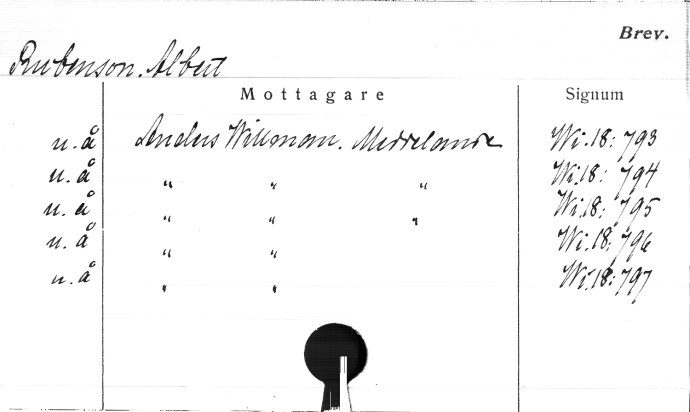 Brev.
Rubenson. Albert
Mottagare Signum
u. å Anders Willman. Meddelande Wi. 18: 793
u. å " " " Wi. 18: 794
u. å " " " Wi. 18: 795
u. å " " Wi. 18: 796
u. å " " Wi. 18: 797